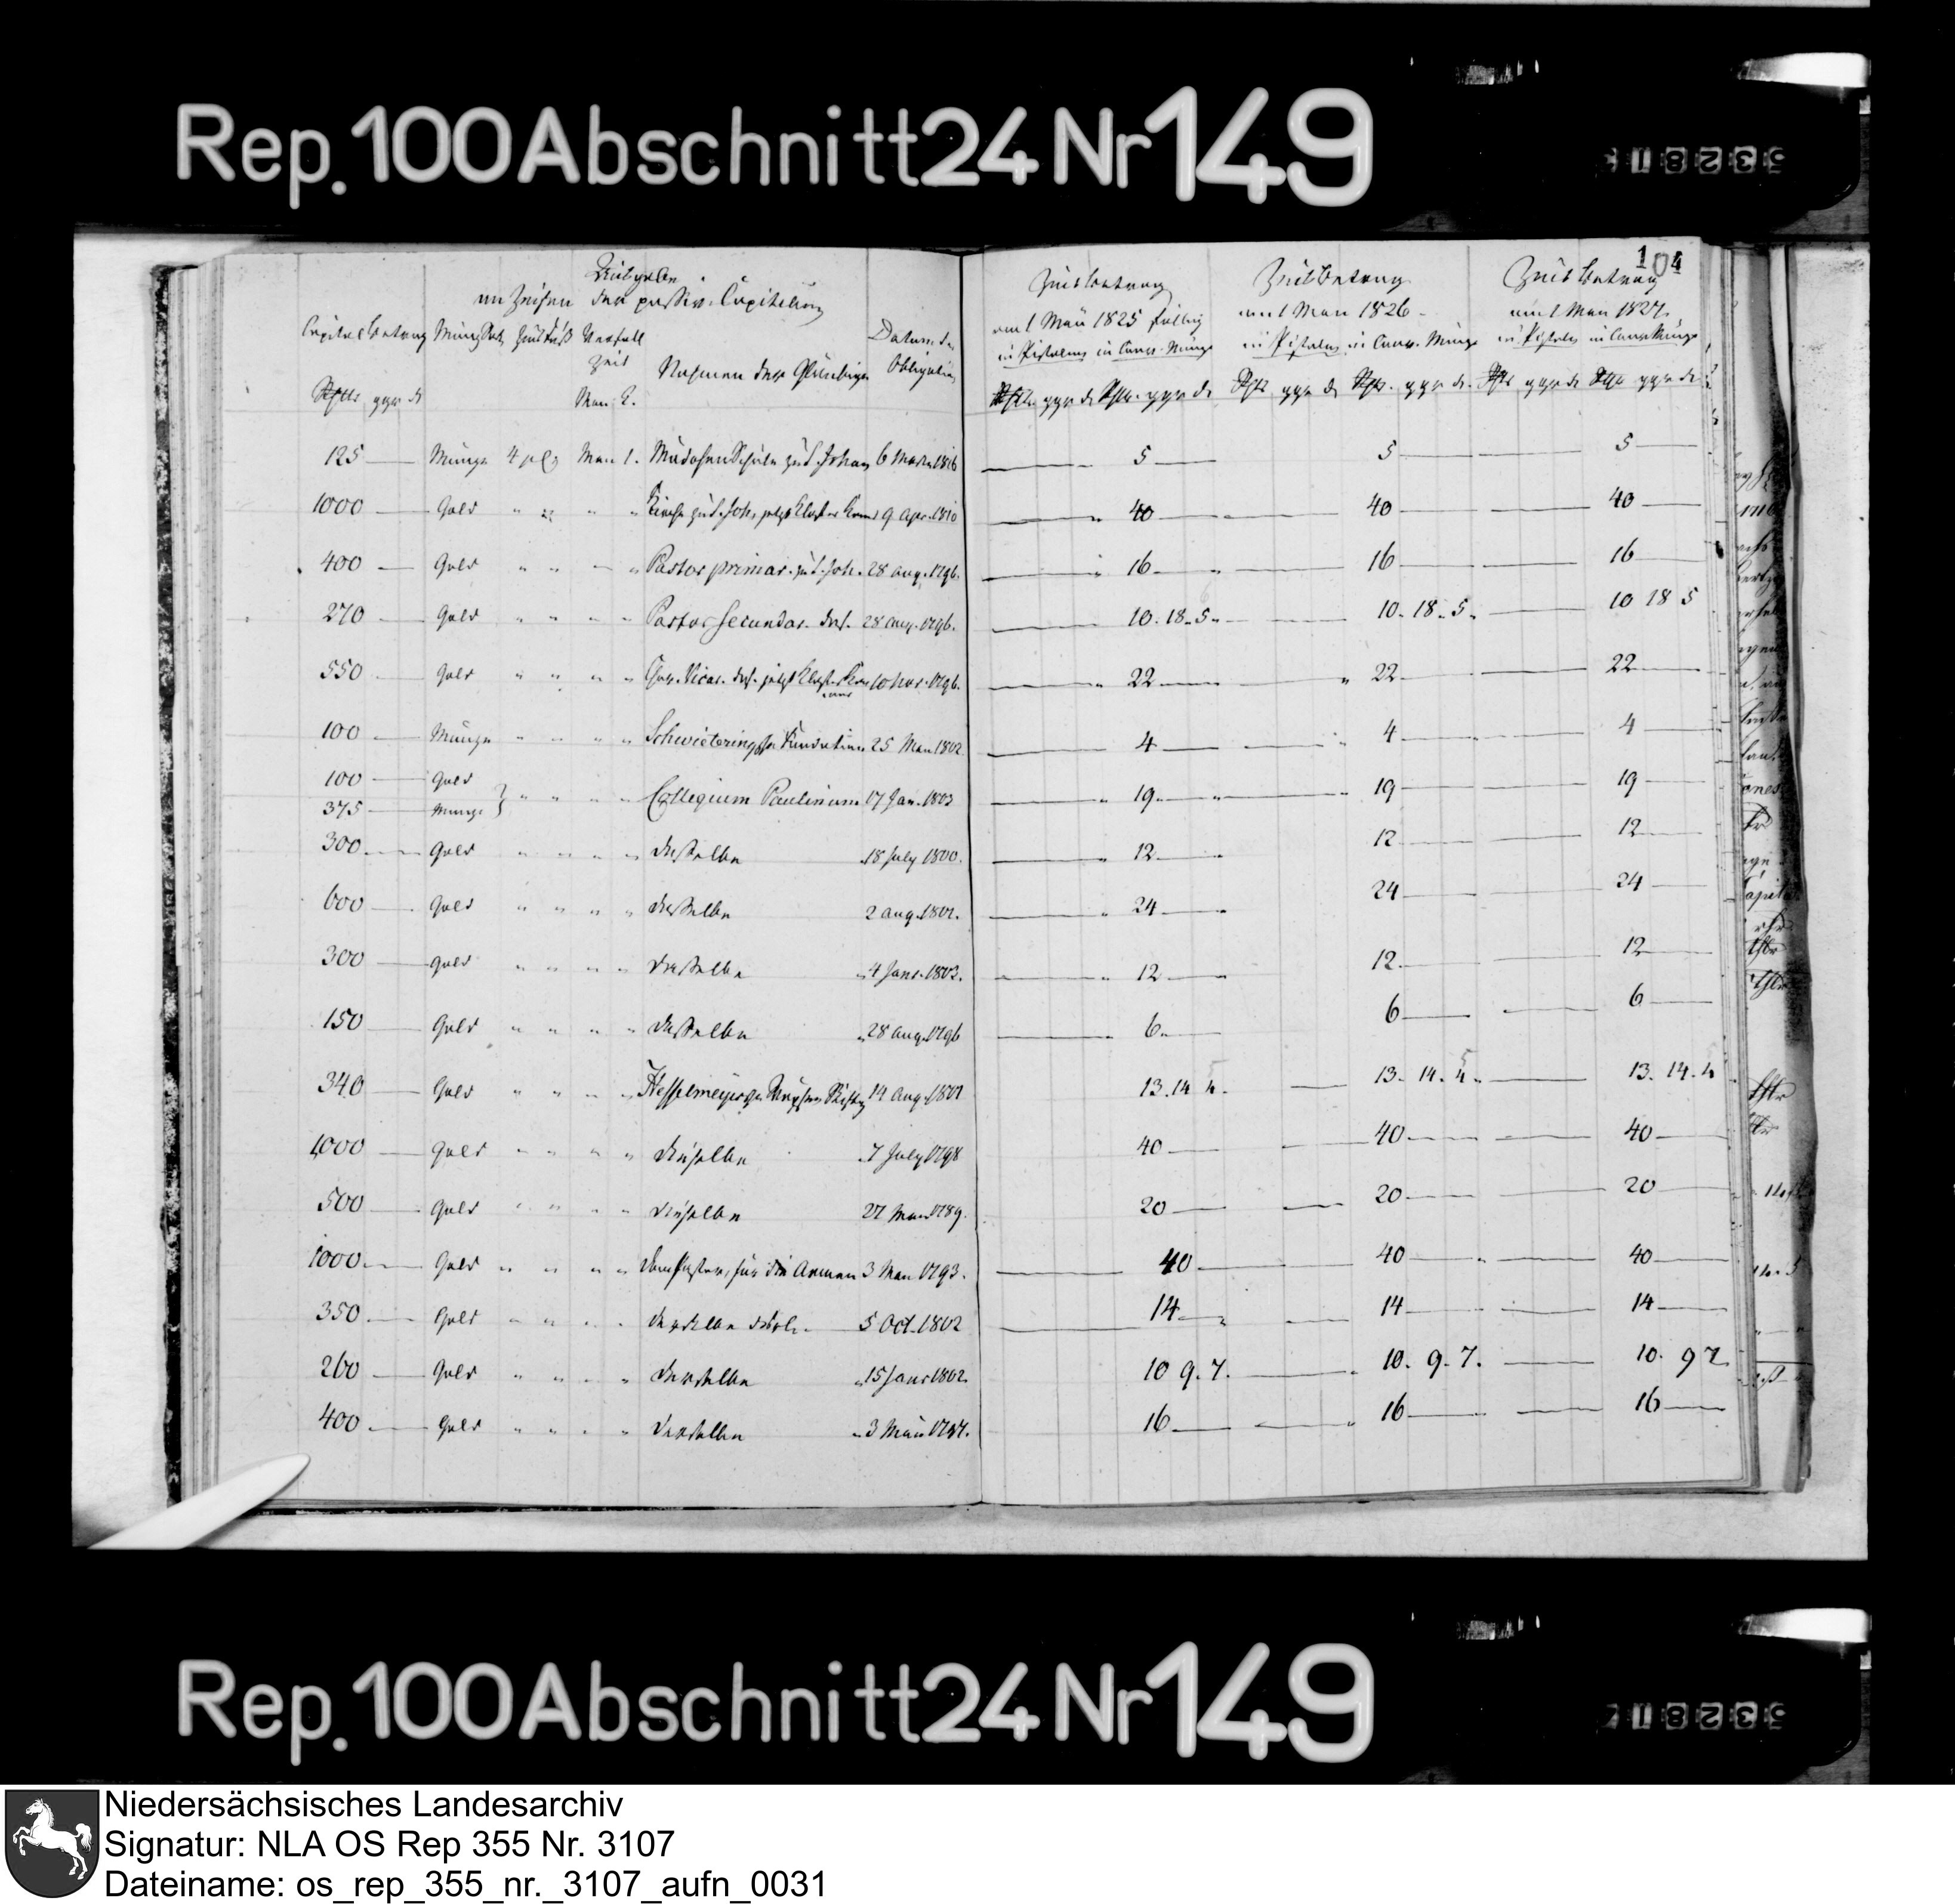 Rep. 100 Abschnitt 24 Nr 149
53281
104
Ausgaben
an Zinsen der passiv Capitalien
Capital betrag Münz Sorte Zins Fuß Verfall Zeit Nahmen der Gläubiger Datum der Obligation
Rthlr ggr d May 1.
Zinsbetrag am 1 May 1825 fällig in Pistolen in Conv. Münze
Zinsbetrag am 1 May 1826 in Pistolen in Conv. Münze
Zinsbetrag am 1 May 1827. in Pistolen in Conv. Münze
Rthlr. ggr d Rthlr. ggr d. Rthlr ggr d Rthlr. ggr d. Rthlr ggr d Rthlr ggr d
125 — Münze 4 pC May 1. Mädchen Schule zu St. Johan 6 1816 — 5 — 5 — 5 —
1000 — Gold " " " " Kirche zu St. Joh. jetzt Kloster 9 Apr. 1810 — 40 — 40 — 40 —
400 — Gold " " — " Pastor primar. zu St. Joh. 28 Aug. 1796. — 16 — 16 — 16 —
270 — Gold " " " " Pastor Secundar. das. 28 Aug. 1796. — 10. 18. 5. — 10. 18. 5. — 10 18 5
550 — Gold " " " " Vicar. das. jetzt 10 Nov. 1796. — 22 — 22 — 22 —
100 — Münze " " " " Schwietering Fundation 25 May 1802 — 4 — 4 — 4 —
100 — Gold
375 — Münze } " " " " Collegium Paulinum 17 Jan. 1803 — 19 — 19 — 19 —
300 — Gold " " " " dasselbe 18 July 1800. — 12 — 12 — 12 —
600 — Gold " " " " dasselbe 2 Aug. 1801. — 24 — 24 — 24 —
300 — Gold " " " " dasselbe 4 Janr. 1803. — 12 — 12 — 12 —
150 — Gold " " " " dasselbe 28 Aug. 1796 — 6 — 6 — 6 —
340 — Gold " " " " Hesselmeyersche 14 Aug. 1801 13. 14 4. — 13. 14. 4. — 13. 14. 4
1000 — Gold " " " " dieselbe 7 July 1798 40 — 40 — 40 —
500 — Gold " " " " dieselbe 27 May 1789. 20 — 20 — 20 —
1000 — Gold " " " " für die Armen 3 May 1793. — 40 — 40 — 40 —
350 — Gold " " " " derselbe 5 Oct. 1802 — 14 — 14 — 14 —
260 — Gold " " " " derselbe 15 Janr 1802. 10 9. 7. — 10. 9. 7. — 10. 9 7
400 — Gold " " " " derselbe 3 May 16 — 16 — 16 —
Rep. 100 Abschnitt 24 Nr 149
53281
Niedersächsisches Landesarchiv
Signatur: NLA OS Rep 355 Nr. 3107
Dateiname: os_rep_355_nr._3107_aufn_0031